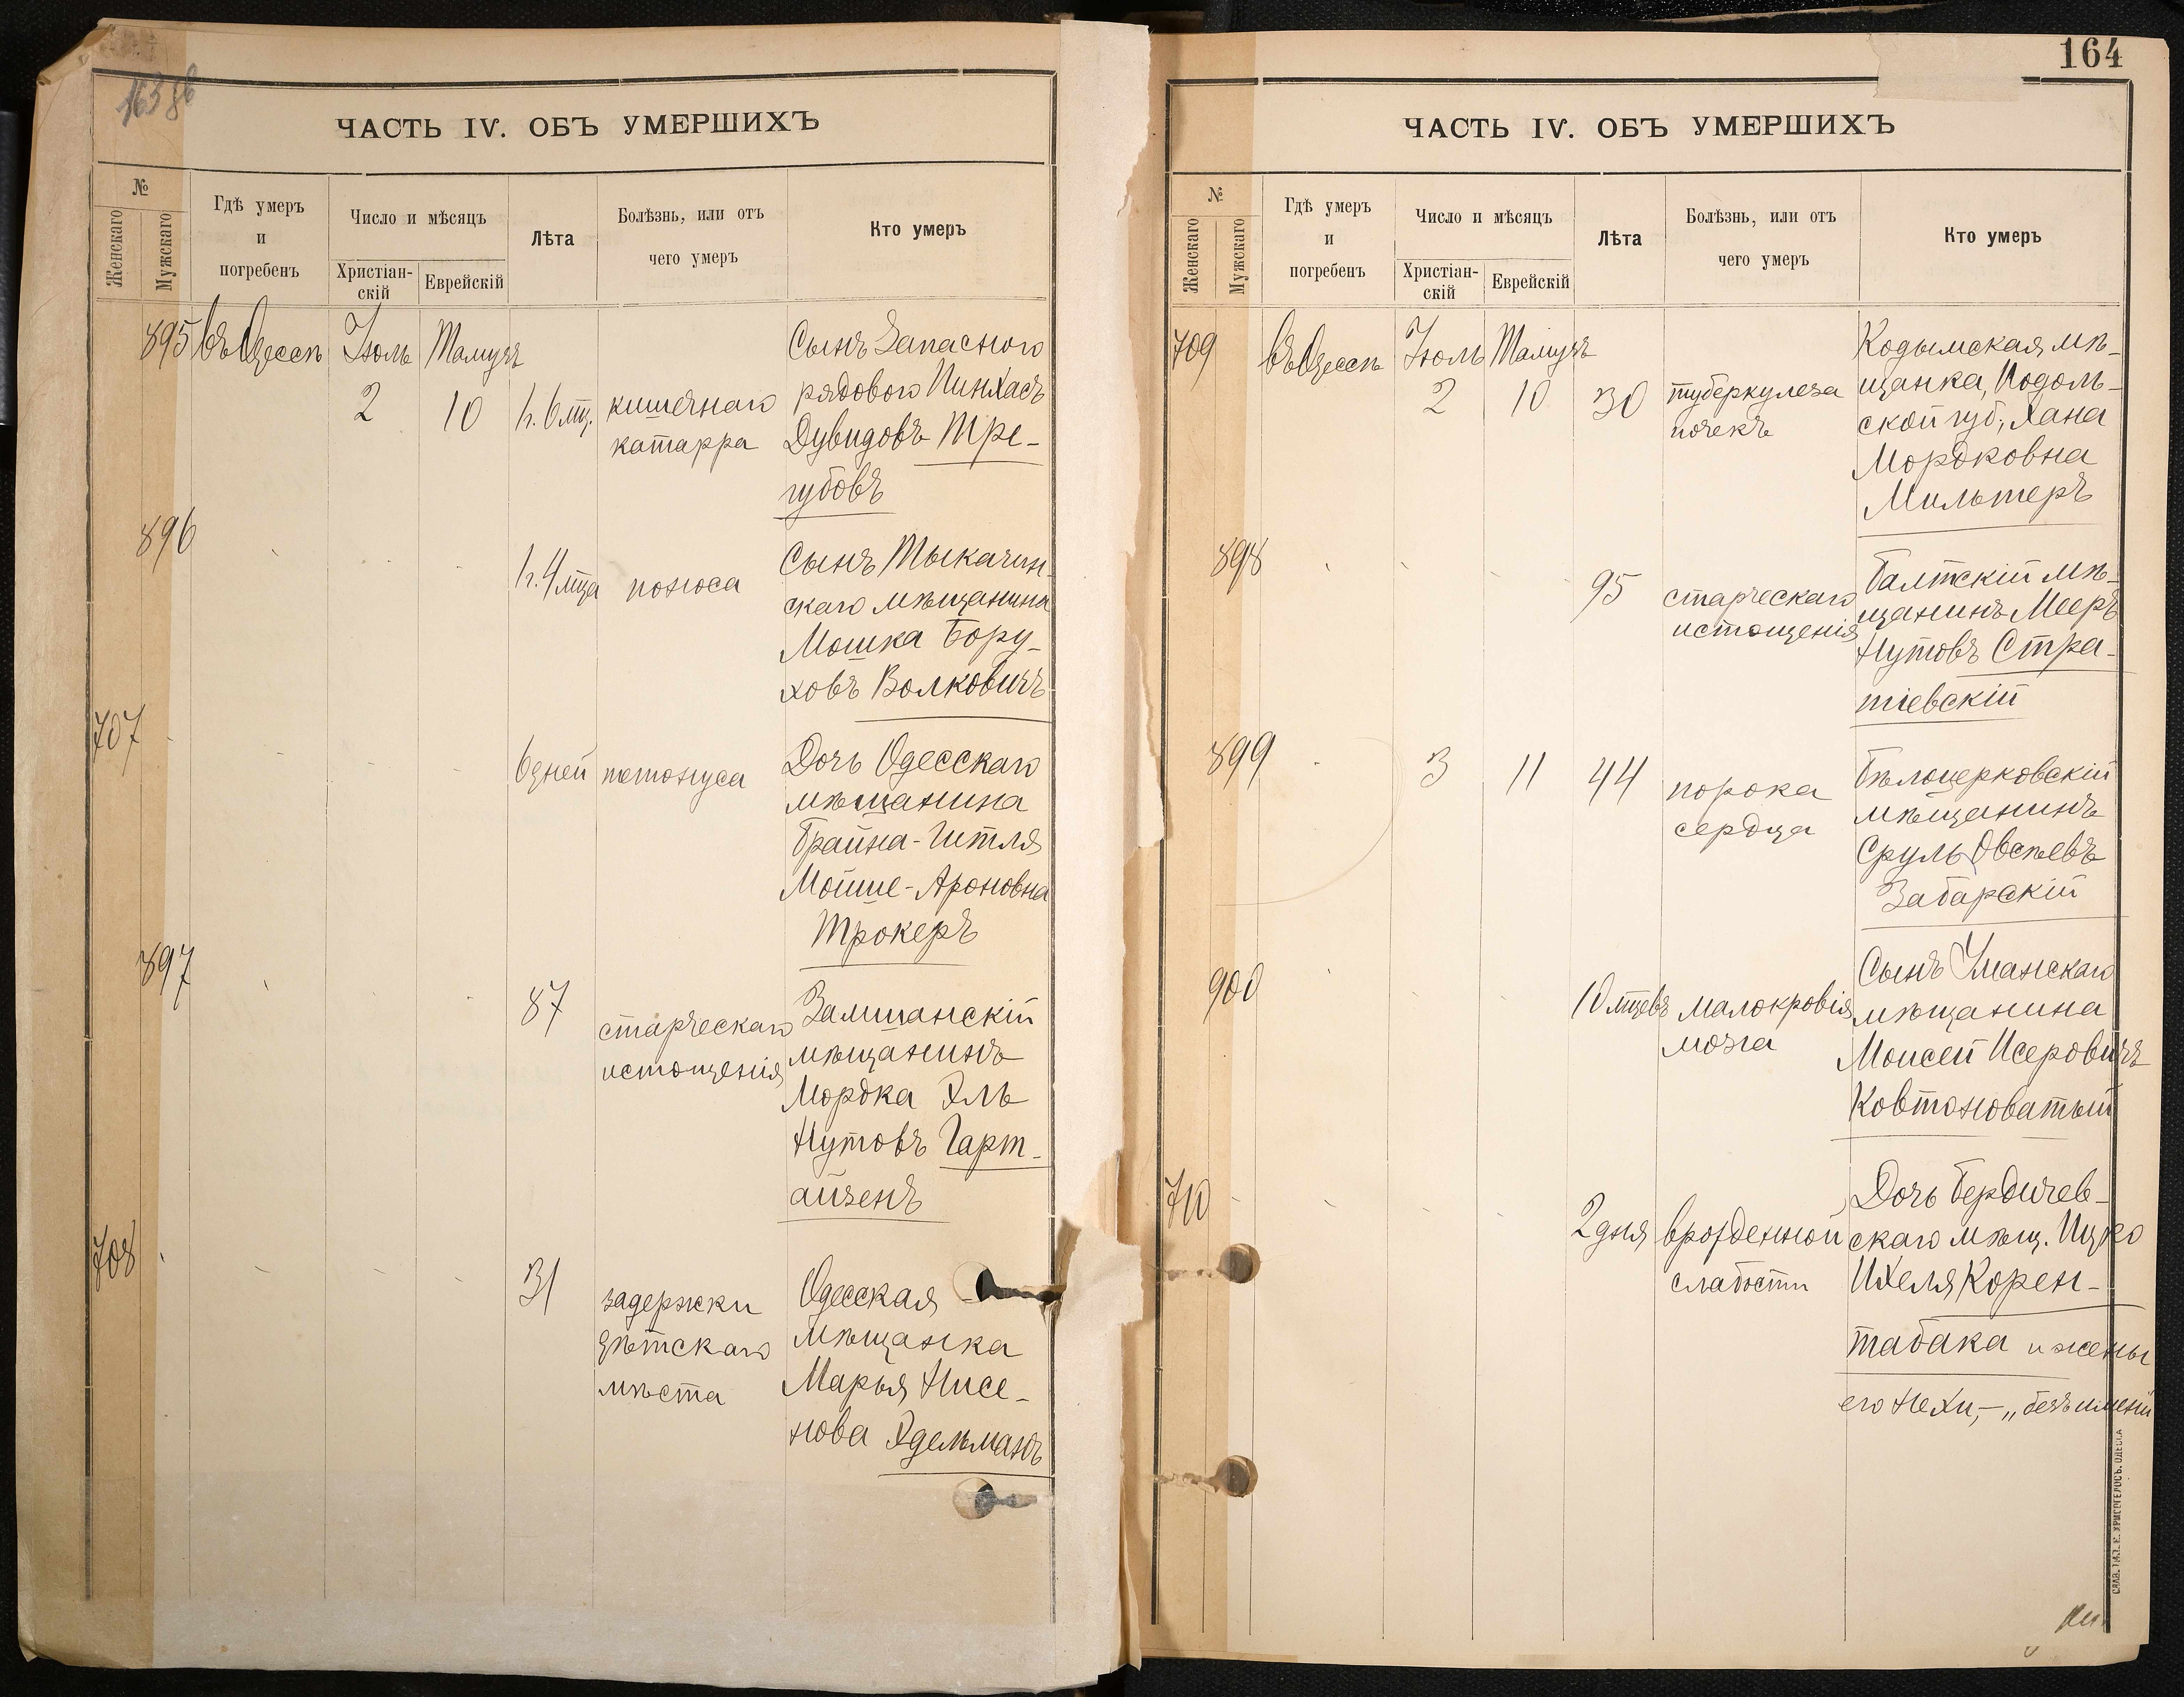 163 об
ЧАСТЬ IV. ОБЪ УМЕРШИХЪ
№
Женскаго
Мужскаго
Гдѣ умеръ
и
погребенъ
Число и мѣсяцъ
Христіан-
скій
Еврейскій
Лѣта
Болѣзнь, или отъ
чего умеръ
Кто умеръ
895 въ Одессѣ Іюль Тамузъ
2 10 1г. 6 мц. кишечнаго
катарра
Сынъ Запаснаго
рядового Пинхасъ
Дувидовъ Тре-
губовъ
896
1г. 4 мца поноса
Сынъ Тыкачин-
скаго мѣщанина
Мошка Бору-
ховъ Волковичъ
707
6 дней тетонуса
Дочь Одесскаго
мѣщанина
Брайна-Гитля
Мойше-Ароновна
Трокеръ
897
87 старческаго
истощенія
мѣщанинъ
Мордка Эль
Нутовъ Гарт-
айзенъ
708
31 задержки
дѣтскаго
мѣста
Одесская
мѣщанка
Марья Нисе-
нова Эдельманъ
164
ЧАСТЬ IV. ОБЪ УМЕРШИХЪ
№
Женскаго
Мужскаго
Гдѣ умеръ
и
погребенъ
Число и мѣсяцъ
Христіан-
скій
Еврейскій
Лѣта
Болѣзнь, или отъ
чего умеръ
Кто умеръ
709 въ Одессѣ Іюль Тамузъ
2 10 30 туберкулеза
почекъ
Кодымская мѣ-
щанка, Подоль-
ской губ., Хана
Мордковна
Мильтеръ
898
95 старческаго
истощенія
Балтскій мѣ-
щанинъ Мееръ
Нутовъ Стра-
тіевскій
899
3 11 44 порока
сердца
Бѣлоцерковскій
мѣщанинъ
Сруль Овсѣевъ
Забарскій
900
10 мцевъ малокровія
мозга
Сынъ Уманскаго
мѣщанина
Моисей Исеровичъ
Ковтоноватый
710
2 дня врожденной
слабости
Дочь Бердичев-
скаго мѣщ. Ицко
Ихеля Корен-
табака и жены
его Нехи,- „безъ имени